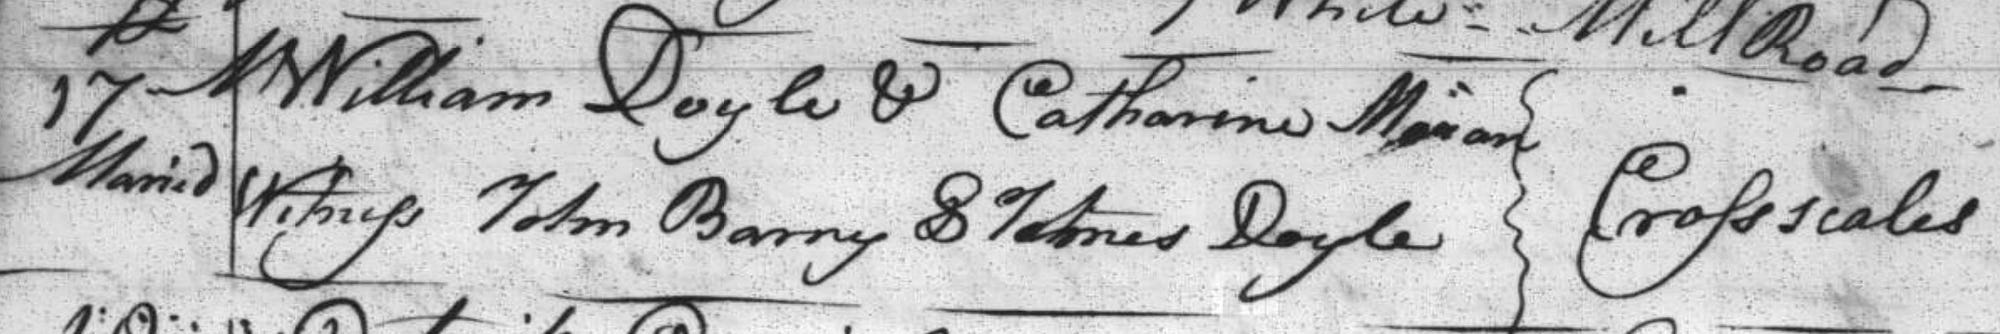 White Mill Road
17 William Doyle & Catharine
Maried Witness John Barry & James Doyle Crossscales